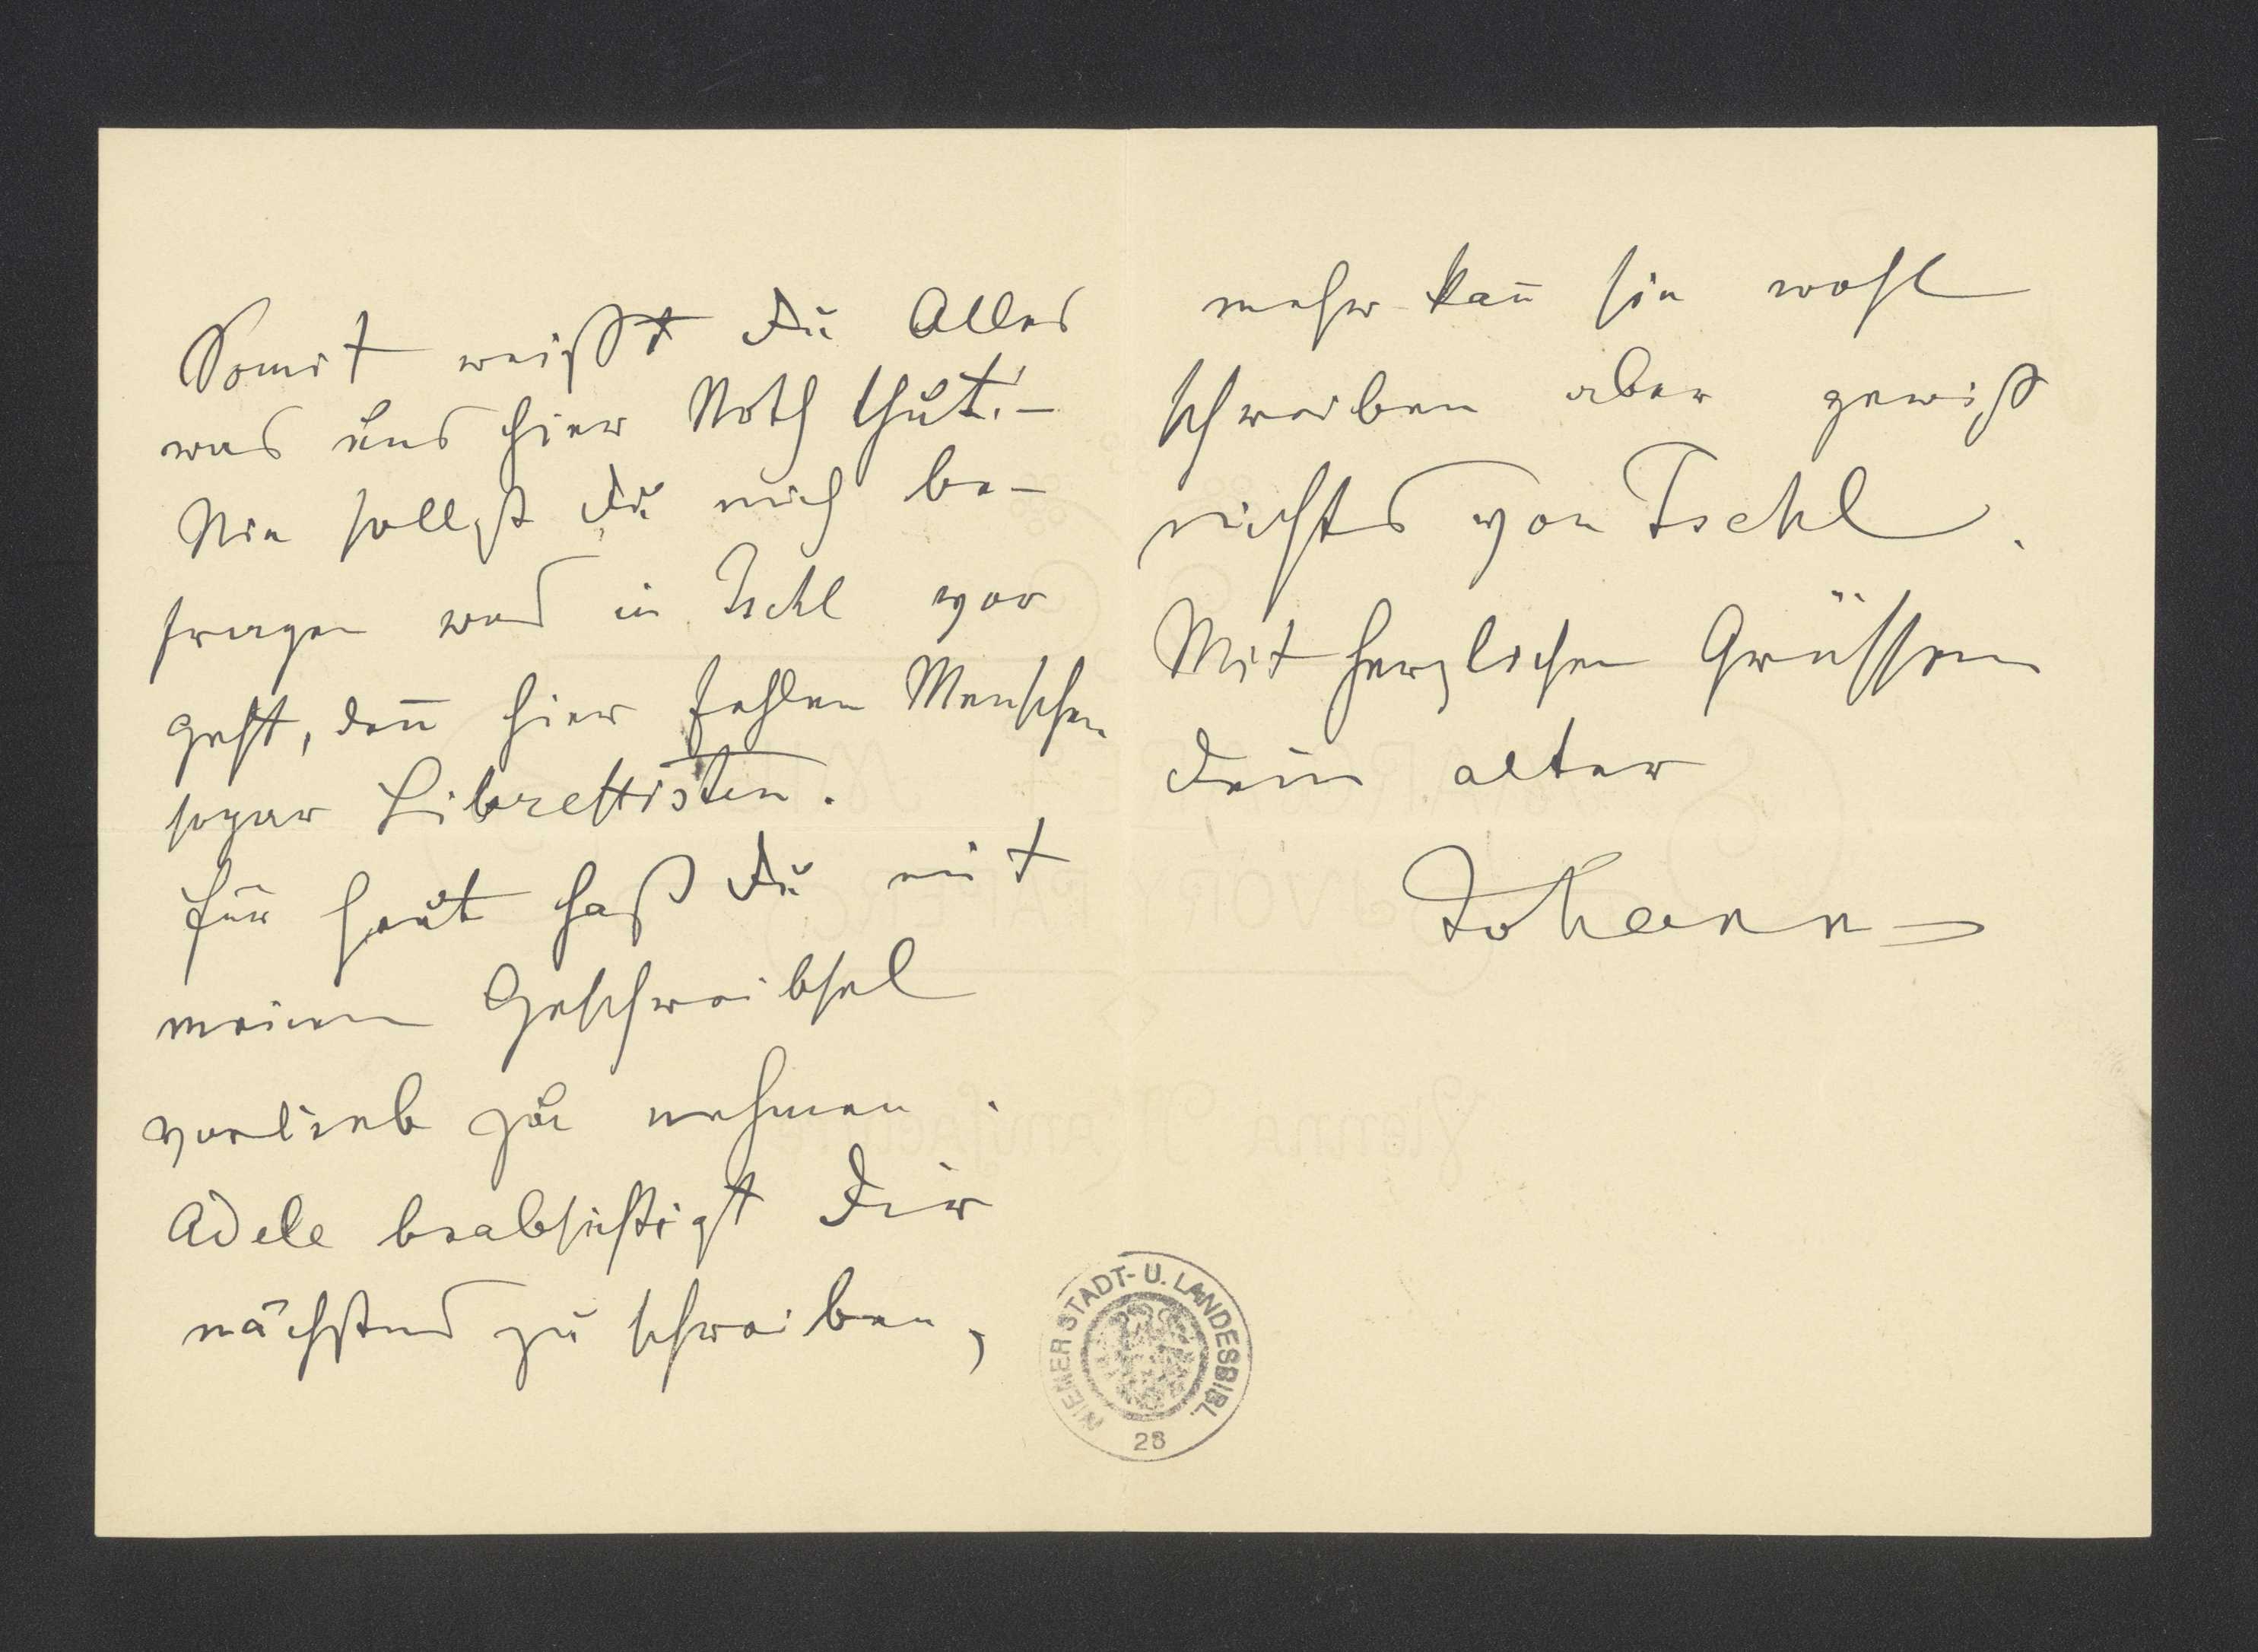 Somit weißt Du Alles
was uns hier Noth thut! –
Nie sollst Du mich be-
fragen was in Ischl vor
geht, den̄ hier fehlen Menschen
sogar Librettisten.
Für heut hast Du mit
meinem Geschreibsel
vorlieb zu nehmen.
Adele beabsichtigt Dir
nächstens zu schreiben,
mehr kan̄ sie wohl
schreiben aber gewiß
nichts von Ischl.
Mit herzlichen Grüssen
Dein alter
Johann
WIENER STADT- U. LANDESBIBL.
28